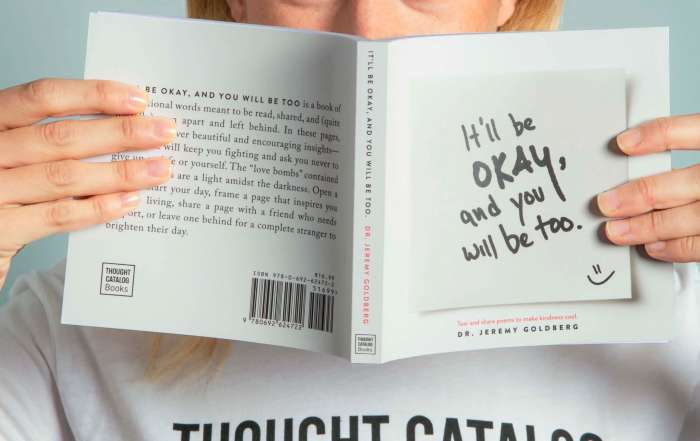 BE OKAY, AND YOU WILL BE TOO is a book of
words meant to be read, shared, and (quite
apart and left behind. In these pages,
beautiful and encouraging insights—
will keep you fighting and ask you never to
give up or yourself. The “love bombs” contained
are a light amidst the darkness. Open a
your day, frame a page that inspires you
living, share a page with a friend who needs
or leave one behind for a complete stranger to
brighten their day.
THOUGHT
CATALOG
Books
ISBN 978-0-692-62472-2
9 780692 624722
IT'LL BE OKAY, AND YOU WILL BE TOO. DR. JEREMY GOLDBERG
THOUGHT
CATALOG
Books
It'll be
OKAY,
and you
will be too.
Tear and share poems to make kindness cool.
DR. JEREMY GOLDBERG
THOUGHT CATALOG